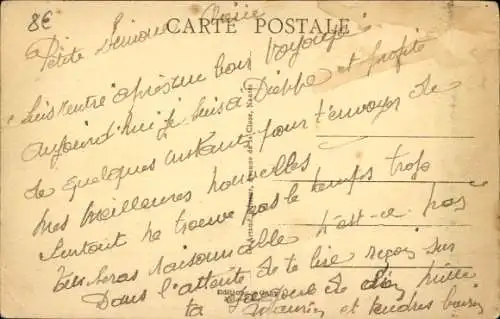 8€
CARTE POSTALE
Petite Simone Chérie
Suis rentré après un bon voyage
aujourd'hui je suis à Dieppe et profite
de quelques instants pour t'envoyer de
mes meilleures nouvelles
Surtout ne trouve pas le temps trop
tu seras raisonnable n'est-ce pas
Dans l'attente de te lire reçois sur
ta de mille
et tendres baisers